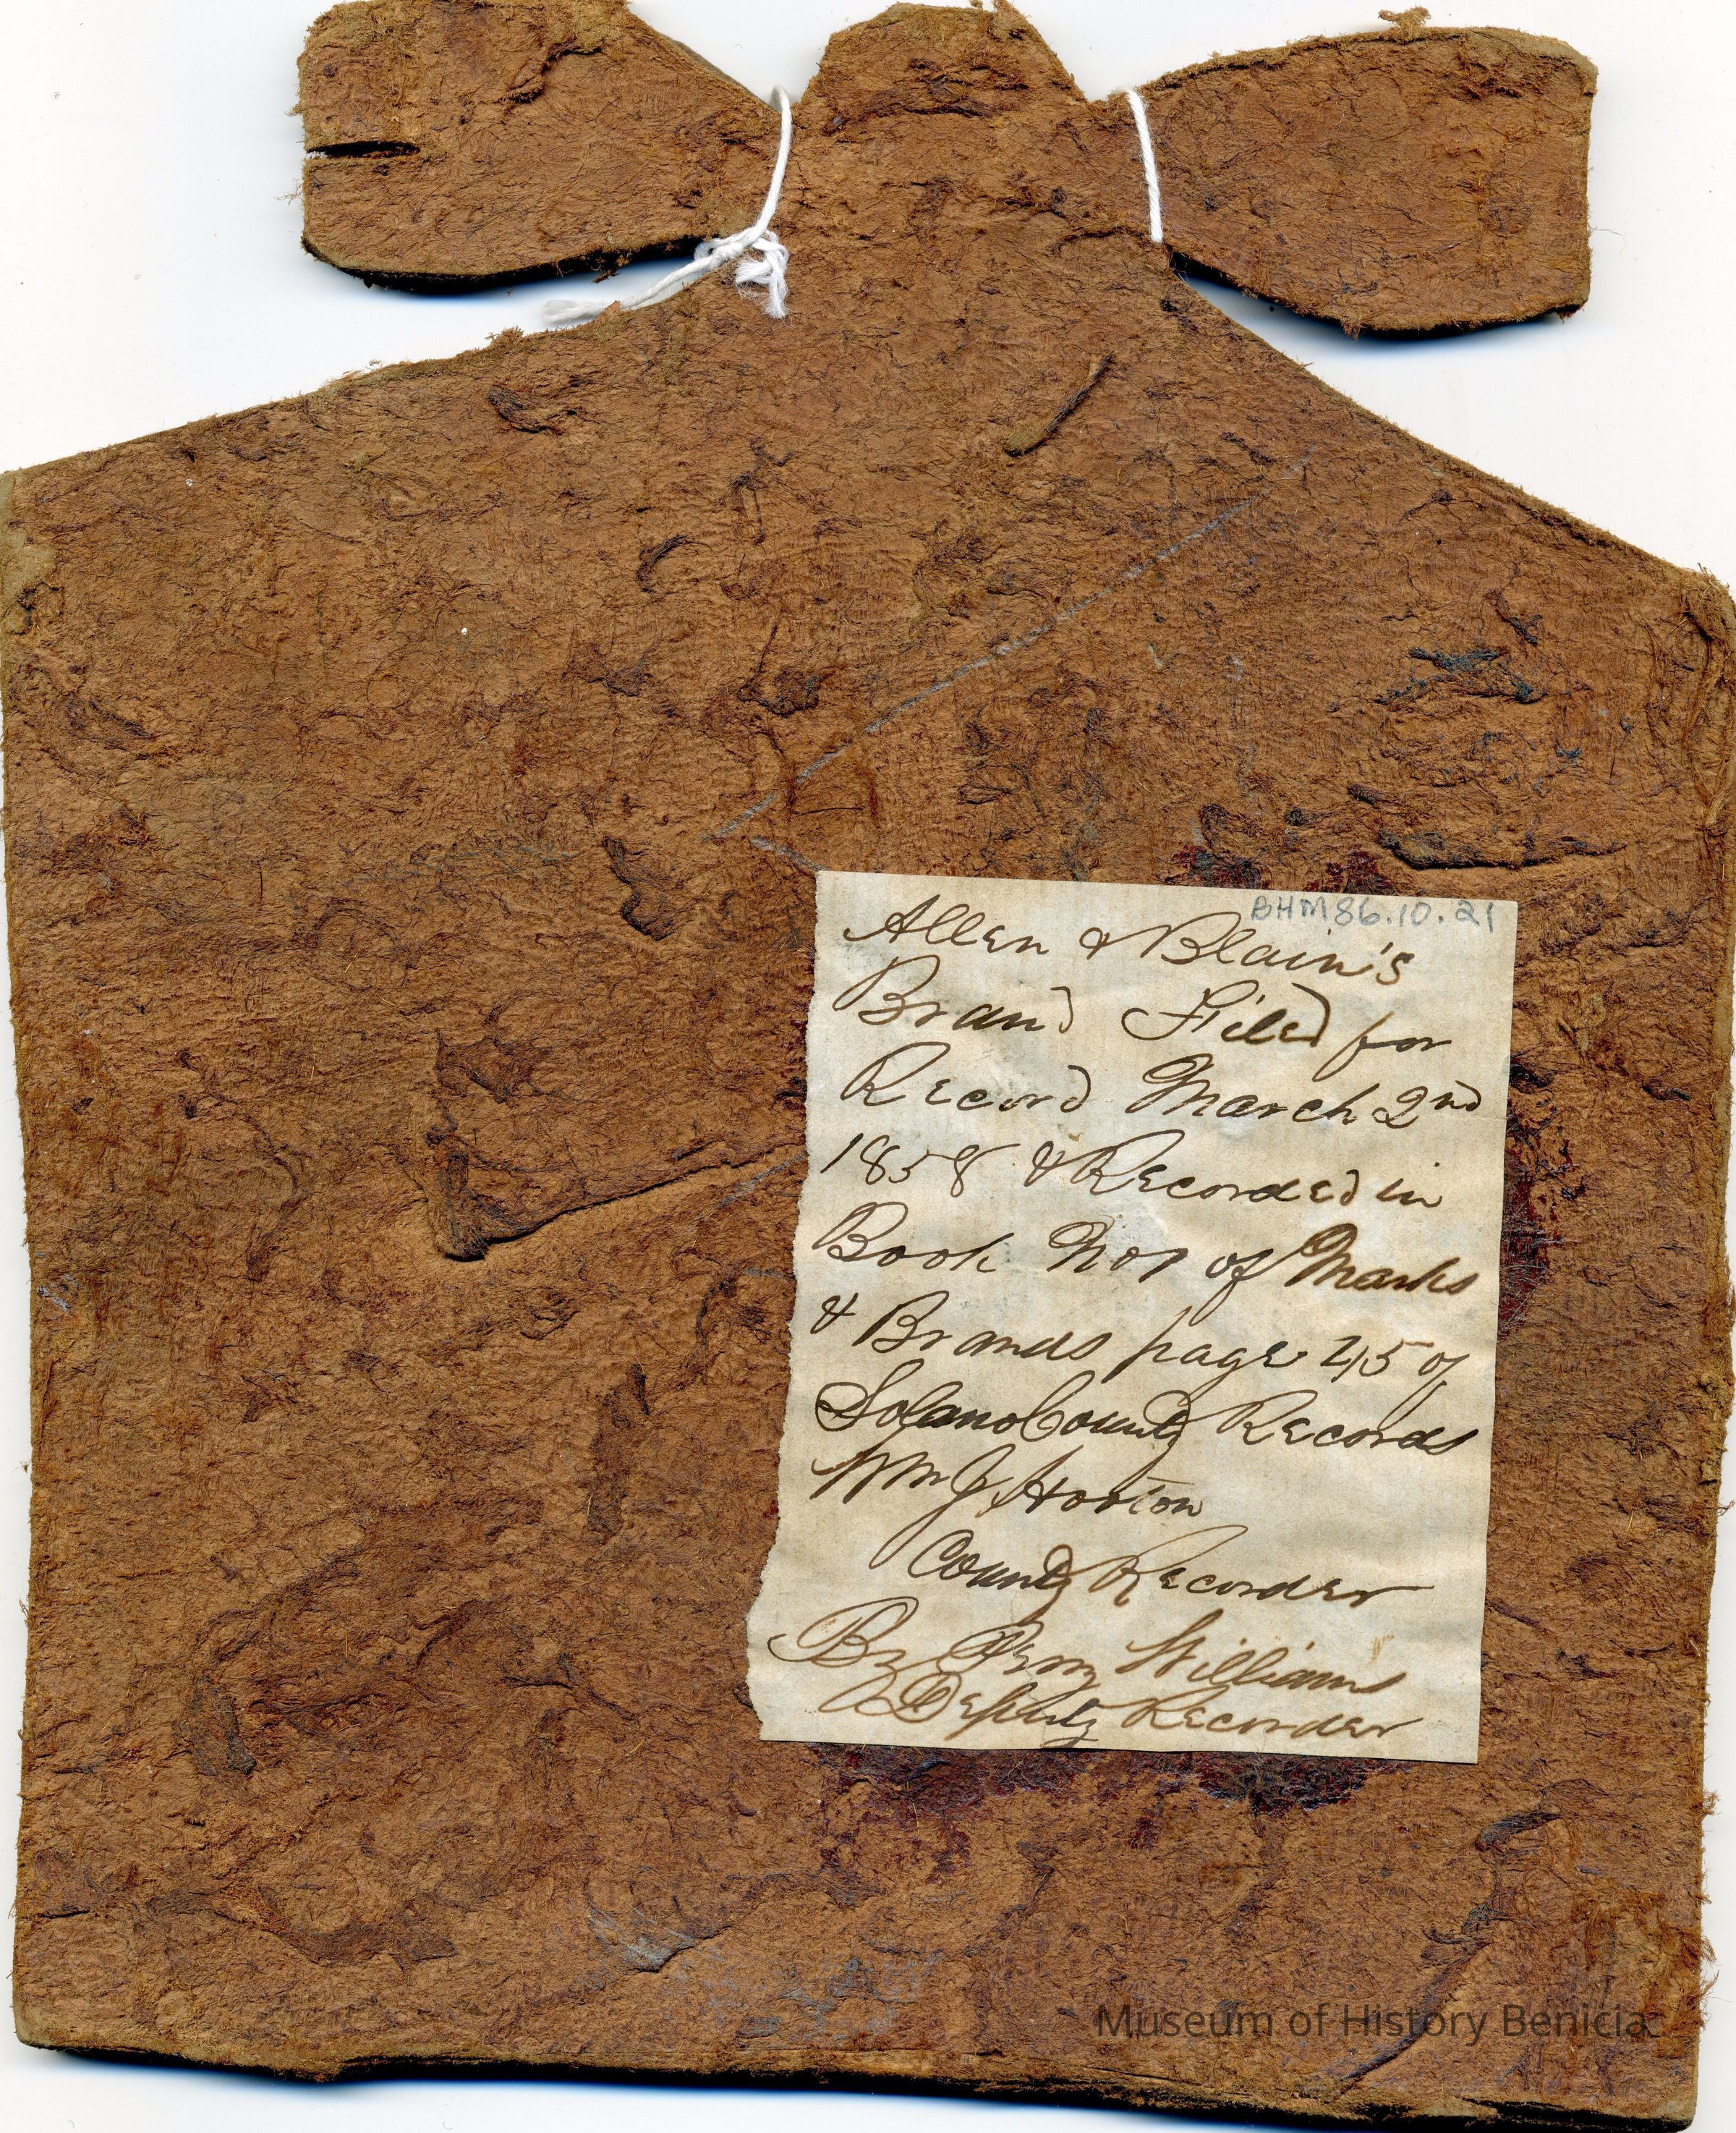 BHM 86.10.21
Allen & Blain's
Brand Filed for
Record March 2nd
1858 & Recorded in
Book No 1 of Marks
& Brands page 245 of
Solano County Records
Wm J Hooton
County Recorder
By Williams
Deputy Recorder
Museum of History Benicia